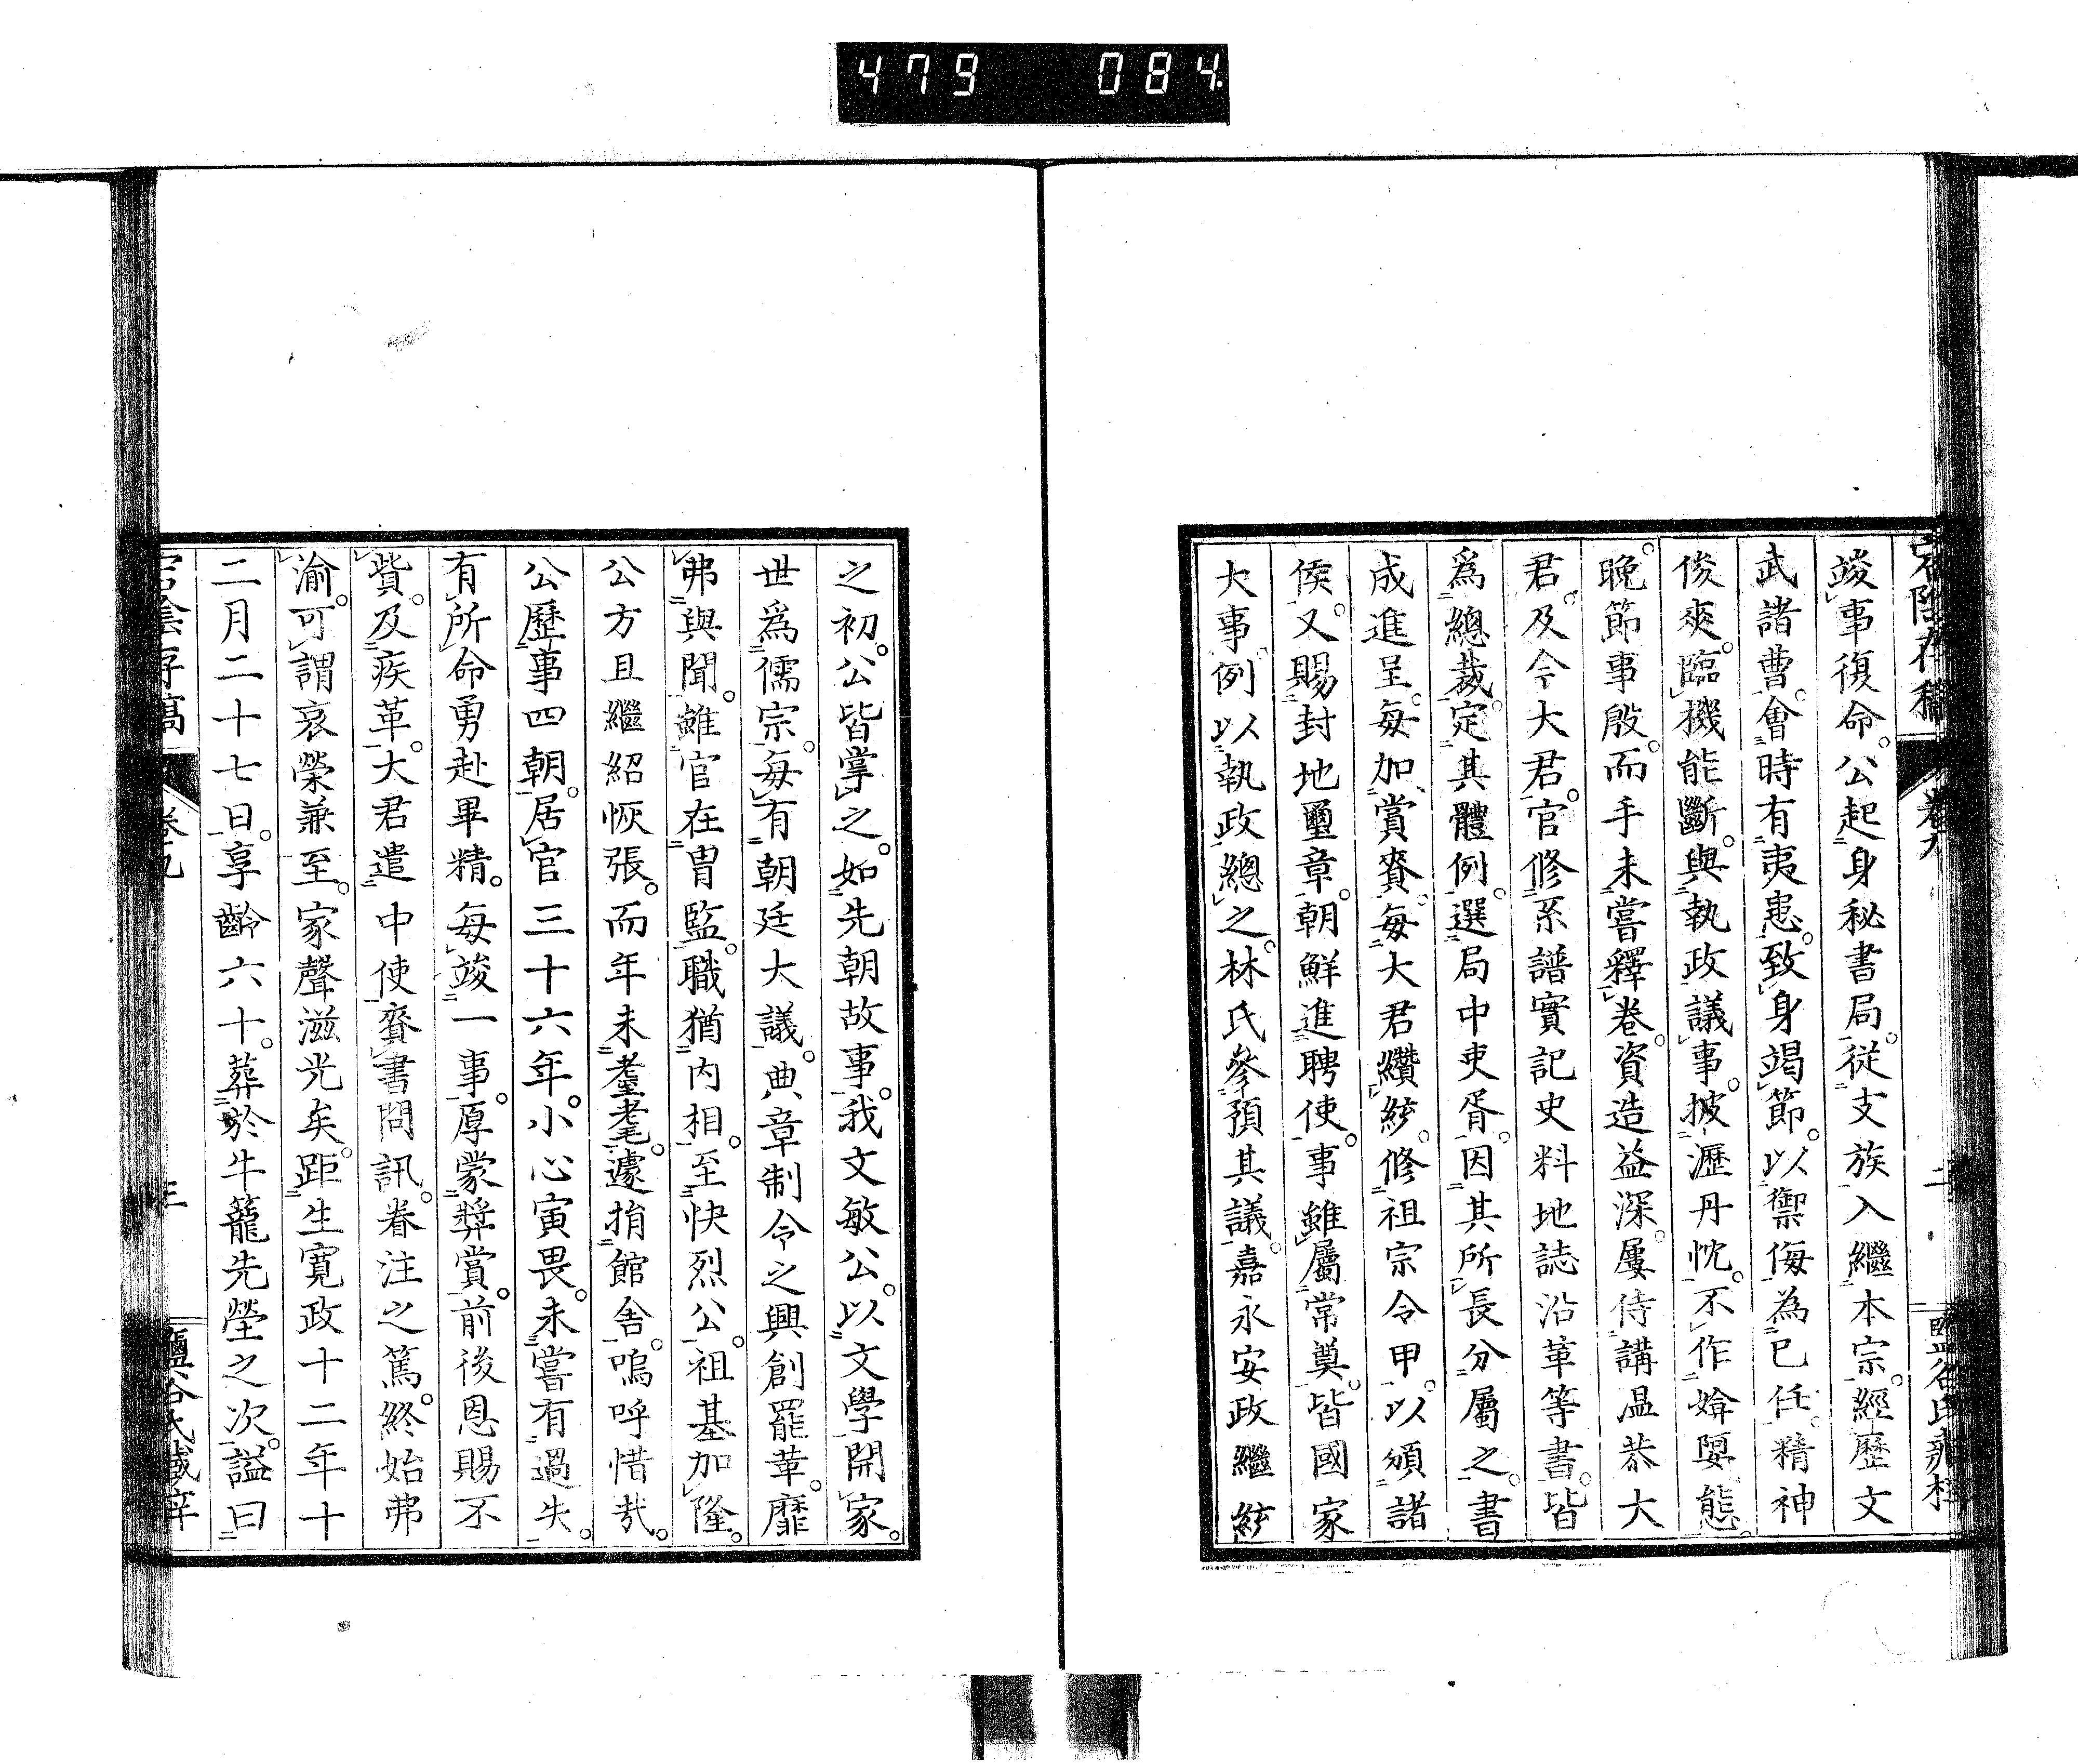 479 084.
竣事復命。公起身秘書局。從支族入繼本宗。經歷文
武諸曹。會時有夷患。致身竭節。以禦侮為已任。精神
俊爽。臨機能斷。與執政議事。披瀝丹忱。不作媕婀態。
晩節事殷。而手未嘗釋卷。資造益深。屢侍講温恭大
君。及今大君。官修系譜實記史料地誌沿革等書。皆
爲總裁。定其體例。選局中吏胥。因其所長分屬之。書
成進呈。每加賞賚。每大君纘統。修祖宗令甲。以頒諸
侯。又賜封地璽章。朝鮮進聘使。事雖屬常奠。皆國家
大事。例以執政總之。林氏參預其議。嘉永安政繼統
之初。公皆掌之。如先朝故事。我文敏公。以文學開家。
世爲儒宗。每有朝廷大議。典章制令之興創罷革。靡
弗與聞。雖官在冑監。職猶内相。至快烈公。祖基加隆。
公方且繼紹恢張。而年未耋耄。遽捐館舍。嗚呼惜哉。
公歷事四朝。居官三十六年。小心寅畏。未嘗有過失。
有所命勇赴畢精。每竣一事。厚蒙奬賞。前後恩賜不
貲。及疾革。大君遣中使賚書問訊。眷注之篤。終始弗
渝。可謂哀榮兼至。家聲滋光矣。距生寛政十二年十
二月二十七日。享齡六十。葬於牛籠先塋之次。謚曰
卷九
三